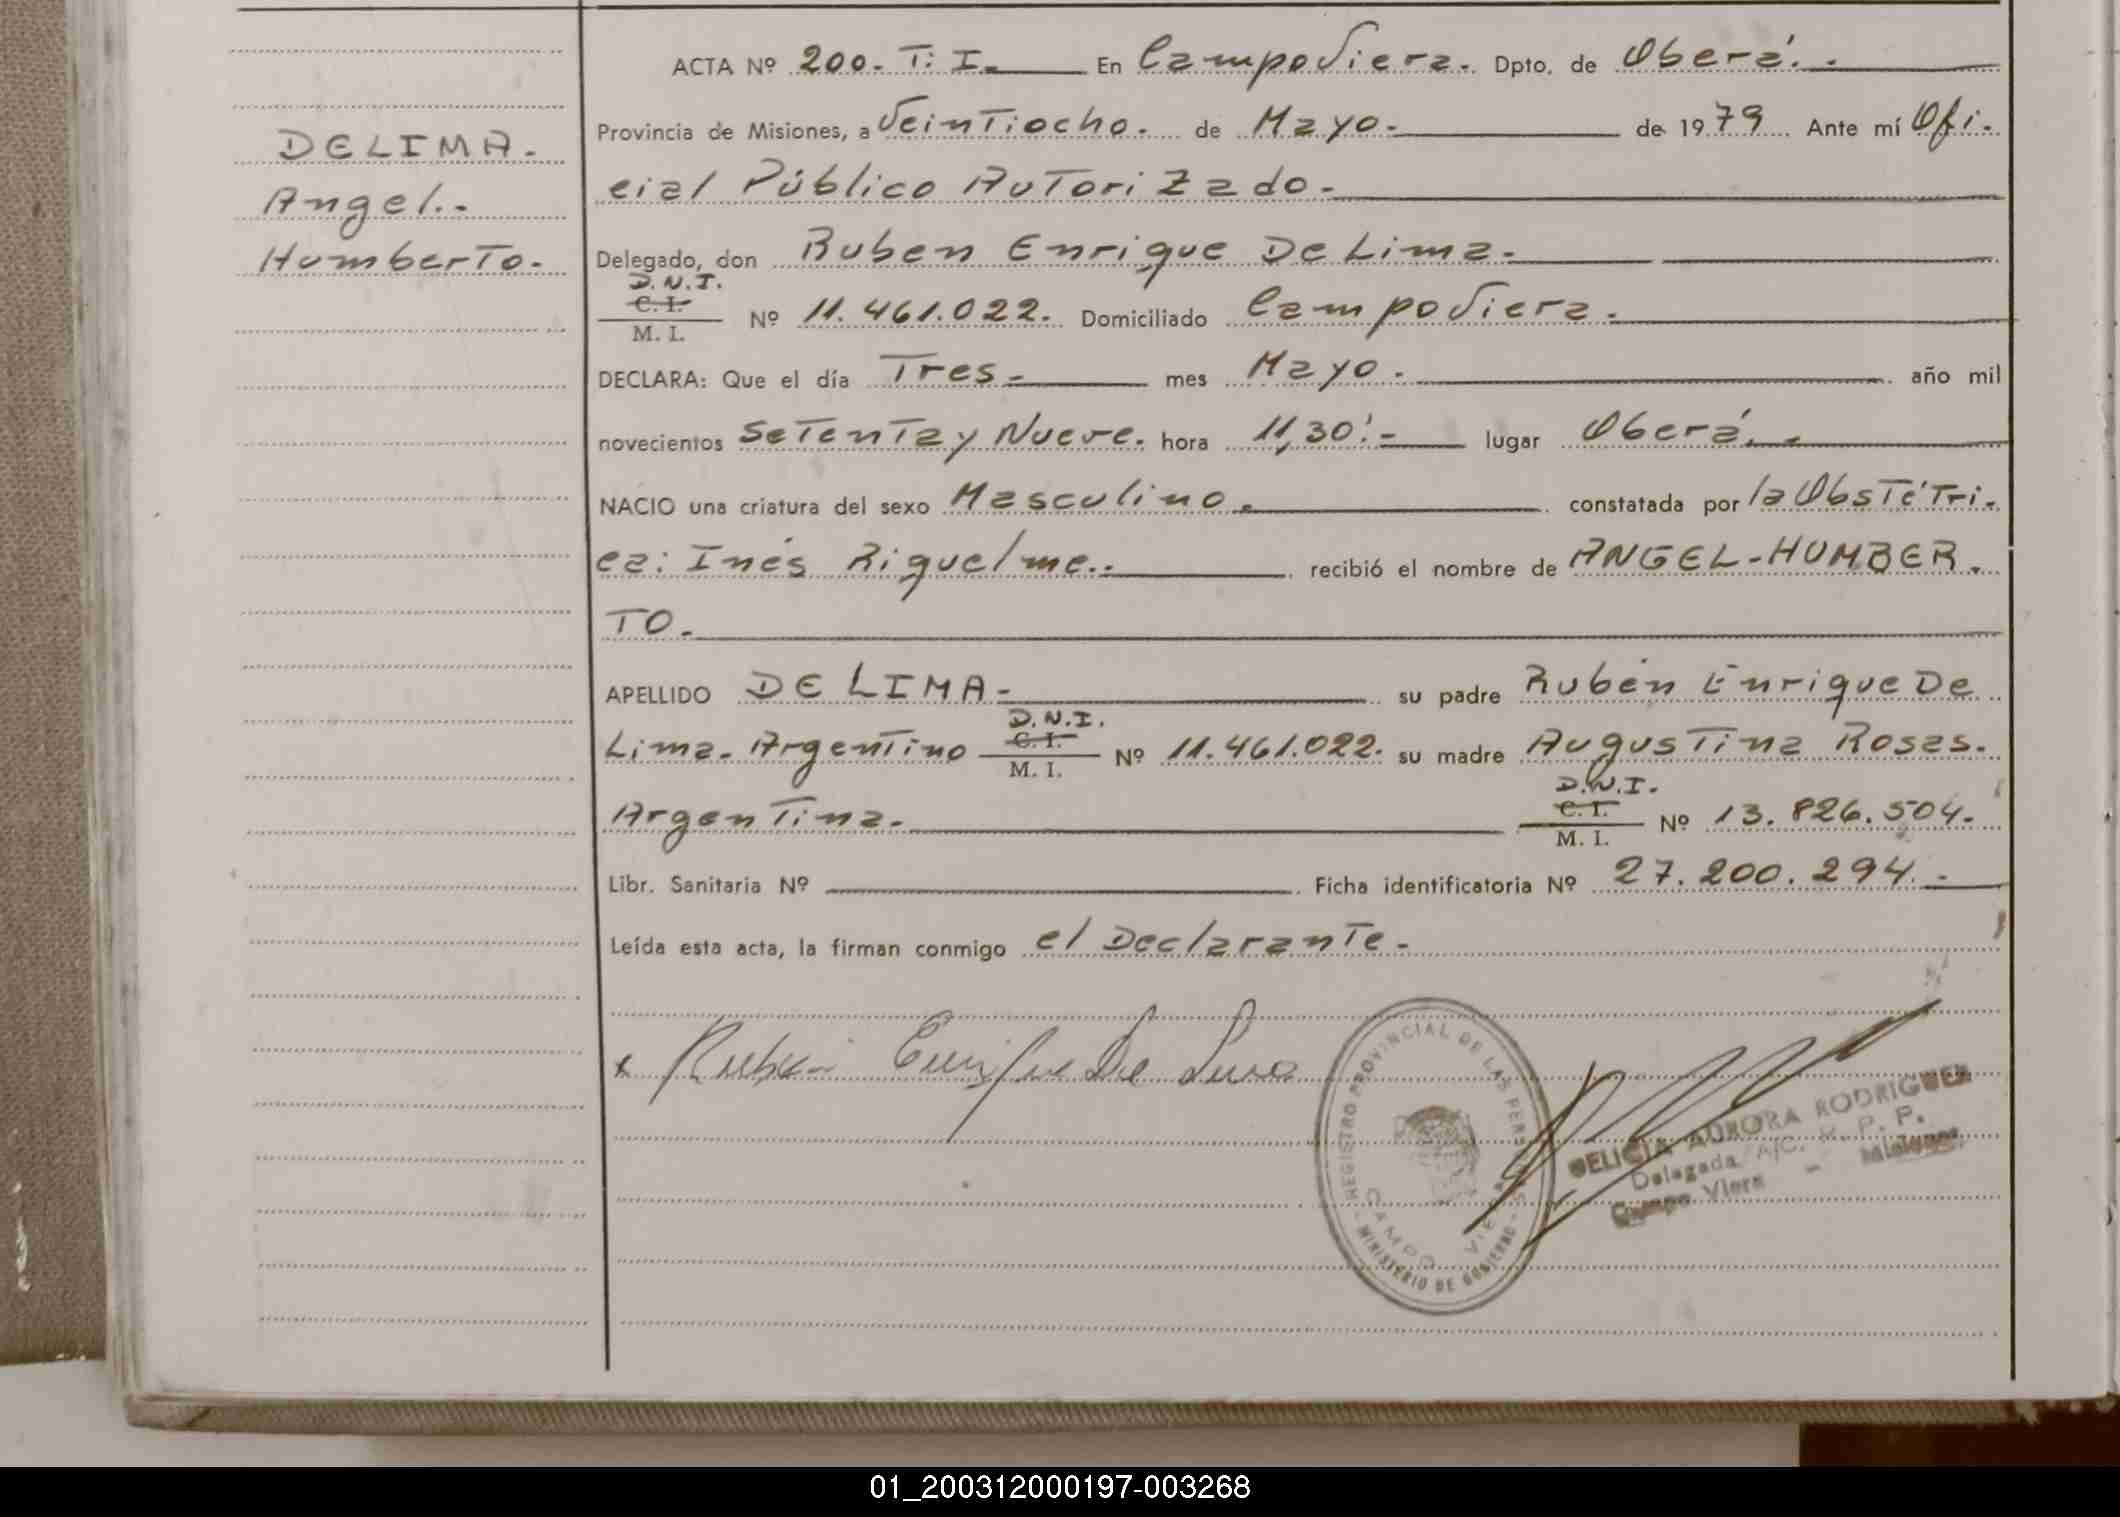 ACTA Nº 200. T: I. En Campo Viera. Dpto. de Oberá.
DELIMA.
Angel.
Humberto.
Provincia de Misiones, a Veintiocho. de Mayo. de 1979 Ante mí Ofi.
cial Público Autorizado.
Delegado, don Ruben Enrique De Lima.
D.N.I.
C. I.
M. I.
Nº 11.461.022. Domiciliado Campo Viera.
DECLARA: Que el día Tres. mes Mayo. año mil
novecientos Setenta y Nueve. hora 11,30'. lugar Oberá.
NACIO una criatura del sexo Masculino. constatada por la Obstétri.
ca: Inés Riquelme. recibió el nombre de ANGEL-HUMBER.
TO.
APELLIDO DE LIMA. su padre Rubén Enrique De
Lima. Argentino D.N.I. C. I. M. I. Nº 11.461.022. su madre Augustina Rosas.
Argentina. D.N.I. C. I. M. I. Nº 13.826.504.
Libr. Sanitaria Nº Ficha identificatoria Nº 27.200.294.
Leída esta acta, la firman conmigo el Declarante.
x Ruben Enrique De Lima
REGISTRO PROVINCIAL DE LAS PERSONAS
CAMPO VIERA
MINISTERIO DE GOBIERNO
AURORA RODRIGUEZ
Delegada A/C. R. P. P.
Campo Viera - Misiones
01_200312000197-003268